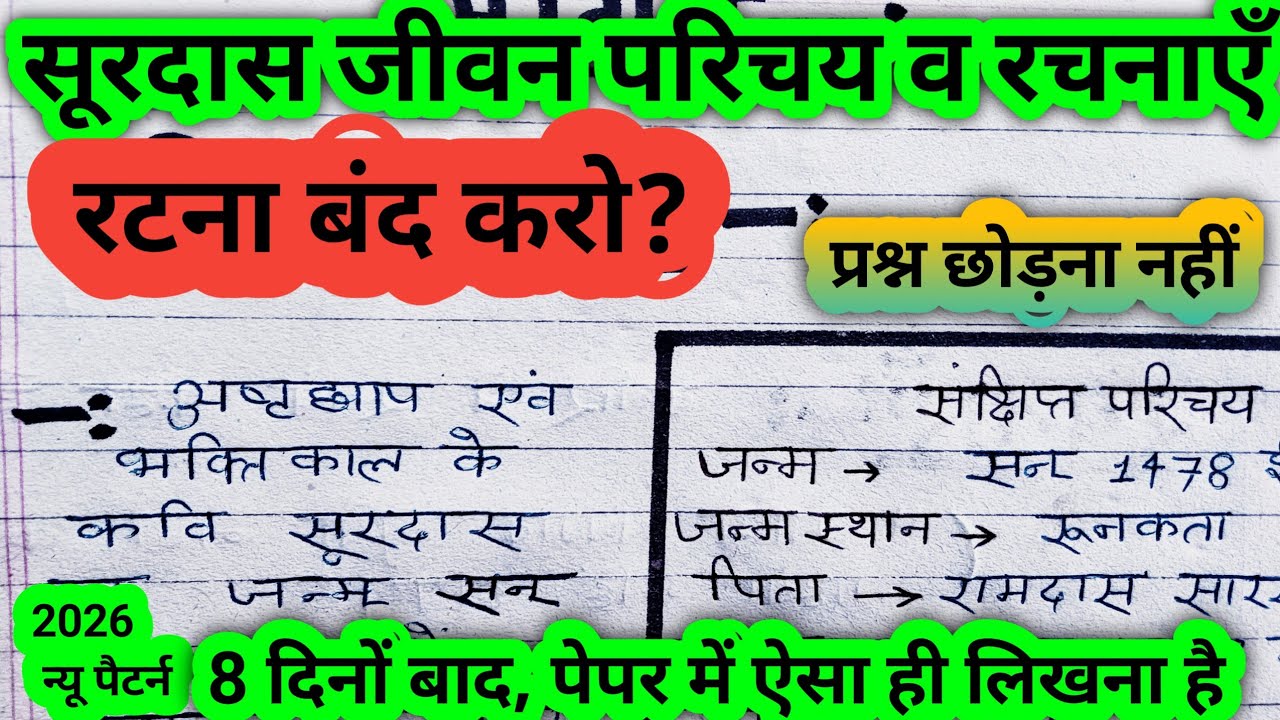 सूरदास जीवन परिचय व रचनाएँ
रटना बंद करो?
प्रश्न छोड़ना नहीं
अष्टछाप एवं
भक्तिकाल के
कवि सूरदास
जन्म सन
संक्षिप्त परिचय
जन्म → सन 1478
जन्म स्थान → रूनकता
पिता → रामदास
2026
न्यू पैटर्न
8 दिनों बाद, पेपर में ऐसा ही लिखना है